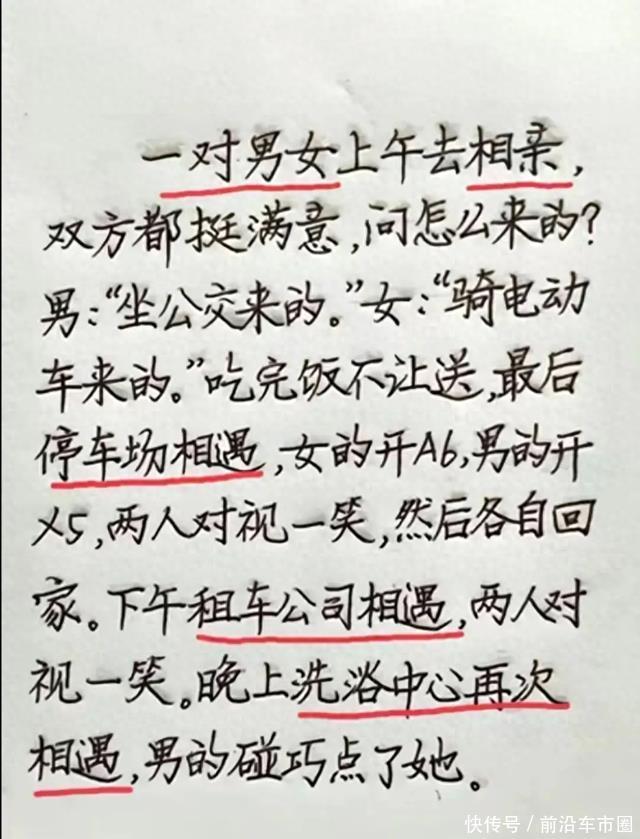 一对男女上午去相亲，
双方都挺满意，问怎么来的？
男：“坐公交来的。”女：“骑电动
车来的。”吃完饭不让送，最后
停车场相遇，女的开A6，男的开
X5，两人对视一笑，然后各自回
家。下午租车公司相遇，两人对
视一笑。晚上洗浴中心再次
相遇，男的碰巧点了她。
快传号／前沿车市圈